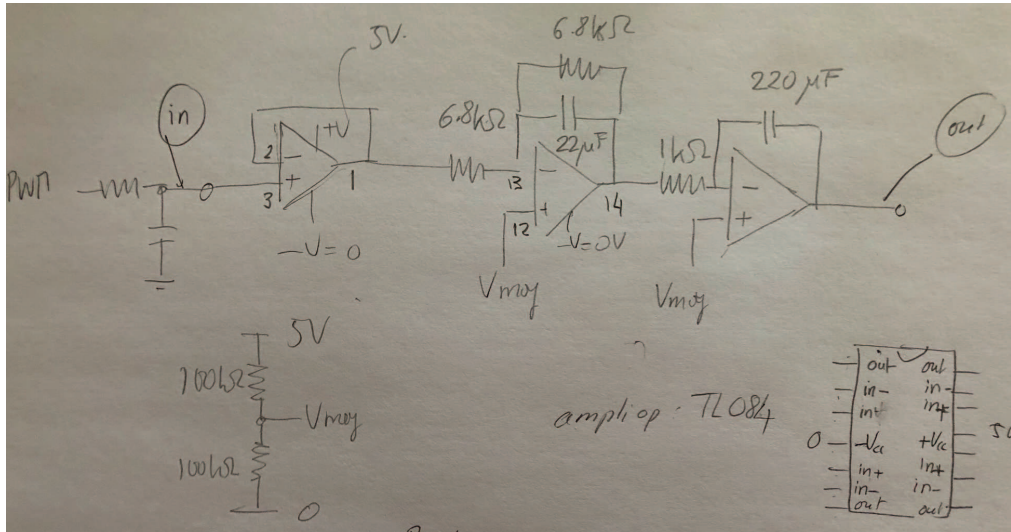 5V.
6.8kΩ
220µF
in
6.8kΩ
22µF
1kΩ
out
PWM
1
2
3
+V
-
+
1
-V=0
13
12
-
+
14
-V=0V
-
+
Vmoy
Vmoy
5V
100kΩ
Vmoy
100kΩ
0
ampliop. TL084
out out
in- in-
in+ in+
0 -Vcc +Vcc
in+ in+
in- in-
out out